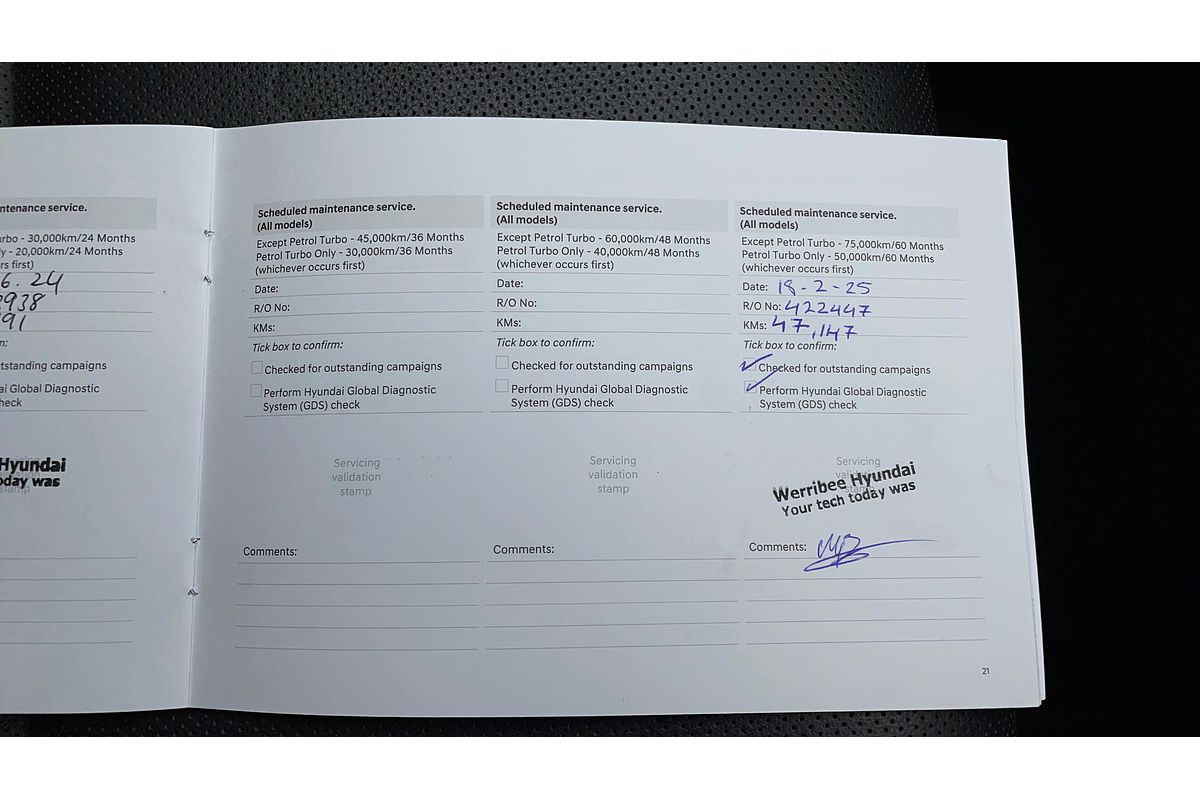 ntenance service.
rbo - 30,000km/24 Months
ly - 20,000km/24 Months
rs first)
6.24
938
91
n:
tstanding campaigns
ai Global Diagnostic
heck
Hyundai
oday was
Scheduled maintenance service.
(All models)
Except Petrol Turbo - 45,000km/36 Months
Petrol Turbo Only - 30,000km/36 Months
(whichever occurs first)
Date:
R/O No:
KMs:
Tick box to confirm:
Checked for outstanding campaigns
Perform Hyundai Global Diagnostic
System (GDS) check
Servicing
validation
stamp
Comments:
Scheduled maintenance service.
(All models)
Except Petrol Turbo - 60,000km/48 Months
Petrol Turbo Only - 40,000km/48 Months
(whichever occurs first)
Date:
R/O No:
KMs:
Tick box to confirm:
Checked for outstanding campaigns
Perform Hyundai Global Diagnostic
System (GDS) check
Servicing
validation
stamp
Comments:
Scheduled maintenance service.
(All models)
Except Petrol Turbo - 75,000km/60 Months
Petrol Turbo Only - 50,000km/60 Months
(whichever occurs first)
Date: 18-2-25
R/O No: 422447
KMs: 47,147
Tick box to confirm:
Checked for outstanding campaigns
Perform Hyundai Global Diagnostic
System (GDS) check
Servicing
validation
stamp
Werribee Hyundai
Your tech today was
Comments:
21